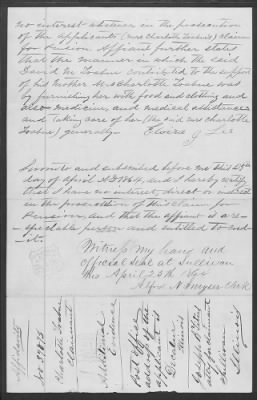 no interest whatever in the prosecution
of the applicants (Mrs Charlotte Loshure) claim
for Pension. Affiant further states
that the manner in which the said
David M. contributed to the support
of his Mother Mrs Charlotte was
by furnishing her with food and clothing and
also medicines and medical assistance
and taking care of her (the said Mrs Charlotte
) generally. Elvira J Lee
Sworn to and subscribed before me this 25th
day of April A.D. and I hereby certify
that I have no interest, direct or indirect
in the prosecution of this claim for
Pension, and that the affiant is a re-
spectable person and entitled to cred-
it.
Witness My hand and
Official Seal at Sullivan
this April 25th
Clerk
Affidavit
No.
Charlotte
Claimant
Additional
Evidence
Post Office
address of the
applicant is
Decatur
Illinois
Sullivan
Illinois